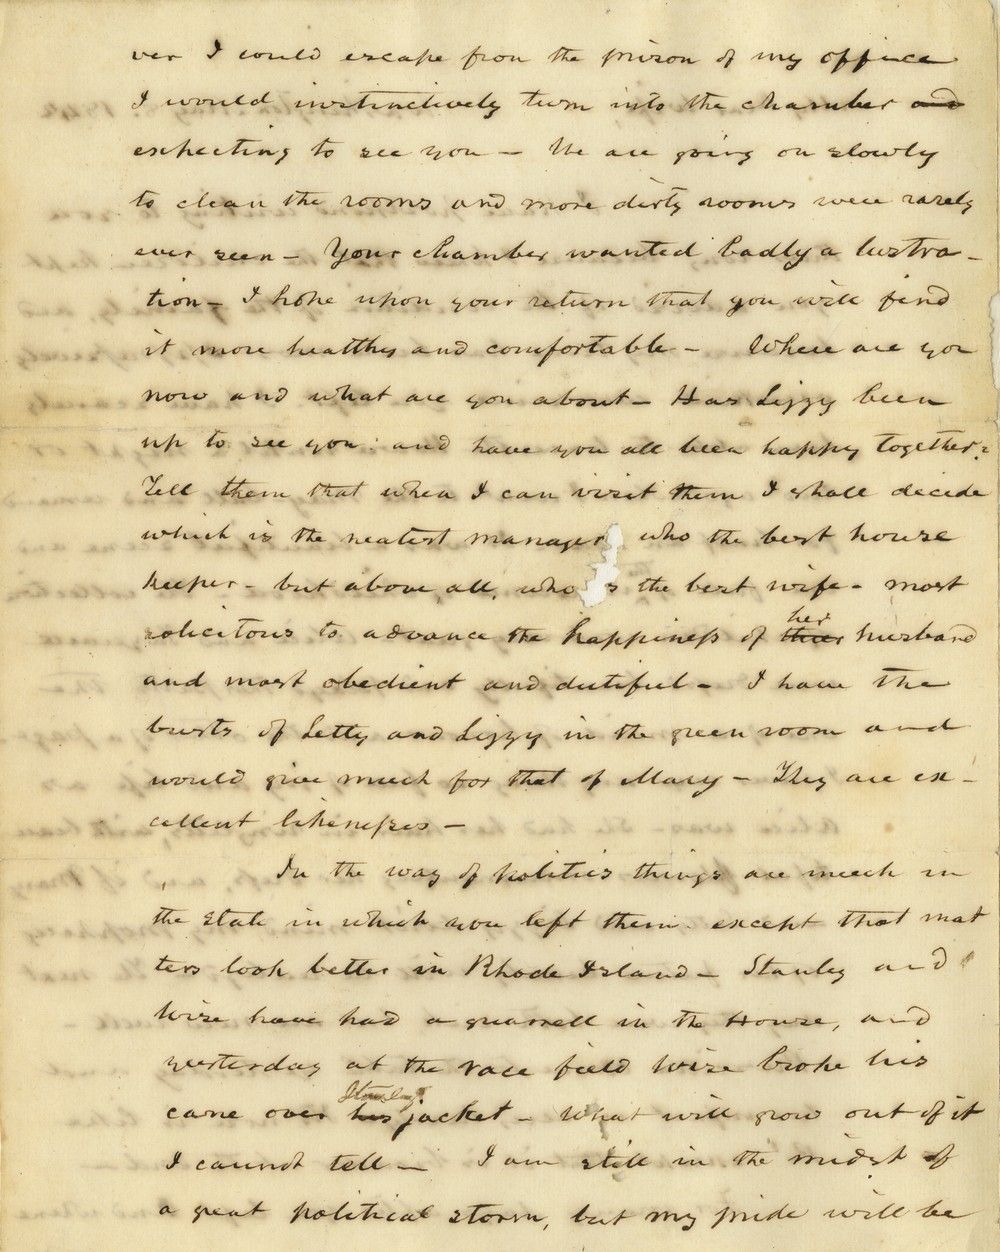 ver I could escape from the prison of my office
I would instinctively turn into the chamber and
expecting to see you — We are going on slowly
to clean the rooms and more dirty rooms were rarely
ever seen — Your chamber wanted badly a lustra-
tion — I hope upon your return that you will find
it more healthy and comfortable — Where are you
now and what are you about — Has Lizzy been
up to see you: and have you all been happy together?
Tell them that when I can visit them I shall decide
which is the neatest manager, who the best house
keeper — but above, all, who is the best wife — most
solicitous to advance the happiness of
her
husband
and most obedient and dutiful — I have the
busts of Letty and Lizzy in the green room and
would give much for that of Mary — They are ex-
cellent likenesses —
In the way of politics things are much in
the state in which you left them. except that mat
ters look better in Rhode Island — Stanley and
Wise have had a quarrell in the House, and
yesterday at the race field Wise broke his
Stanley's
cane over his jacket — What will grow out of it
I cannot tell — I am still in the midst of
a great political storm, but my pride will be